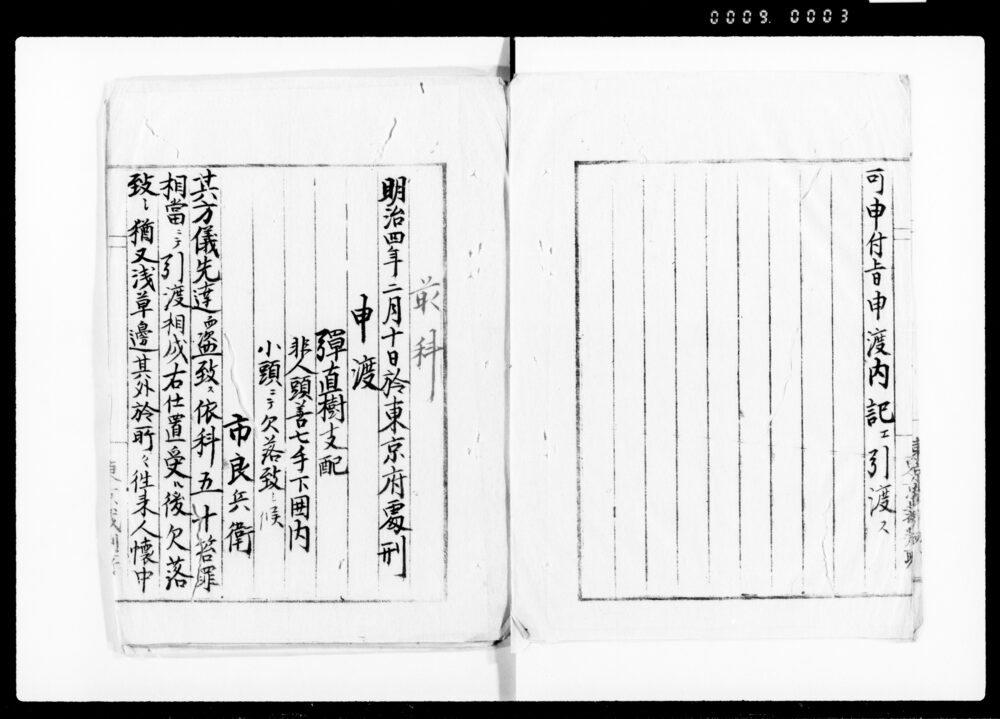 0009 0003
可申付旨申渡内記エ引渡ス
最科
明治四年二月十日於東京府処刑
申渡
弾直樹支配
非人頭善七手下囲内
小頭ニテ欠落致シ候
市良兵衛
其方儀先達而盗致ス依科五十笞罪
相當ニテ引渡相成右仕置受ル後欠落
致シ猶又浅草邊其外於所々往来人懐中